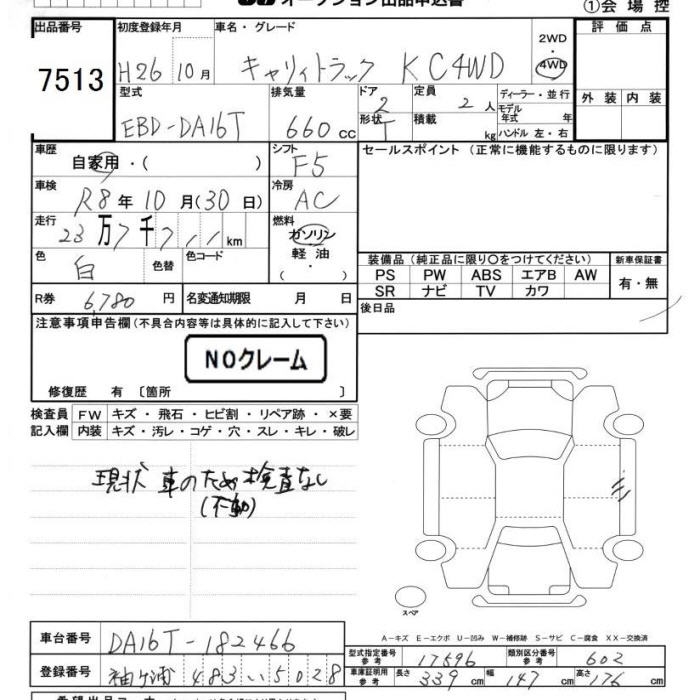 オークション出品申込書
①会場控
出品番号 初度登録年月 車名・グレード 2WD 評価点
7513 H26 10月 キャリイトラック KC4WD 4WD
型式 排気量 ドア 定員 ディーラー・並行 外装 内装
EBD-DA16T 660cc 2 2人 モデル年式 年
形状 T 積載 kg ハンドル 左・右
車歴 シフト セールスポイント(正常に機能するものに限ります)
自家用・( ) F5
車検 冷房
R8年10月(30日) AC
走行 燃料
23万7千 km ガソリン
色 色替 色コード 軽油
白 ( ・ )
装備品(純正品に限り○をつけてください) 新車保証書
PS PW ABS エアB AW 有・無
SR ナビ TV カワ
R券 6,780円 名変通知期限 月 日 後日品
注意事項申告欄(不具合内容等は具体的に記入して下さい)
NOクレーム
修復歴 有〔箇所 〕
検査員 FW キズ・飛石・ヒビ割・リペア跡・×要
記入欄 内装 キズ・汚レ・コゲ・穴・スレ・キレ・破レ
現状車のため検査なし
(不動)
スペア
A-キズ E-エクボ U-凹み W-補修跡 S-サビ C-腐食 XX-交換済
車台番号 DA16T-182466
型式指定番号 参考 17596 類別区分番号 参考 602
登録番号 袖ヶ浦 483 い 5028
車庫証明用 参考 長さ 339cm 幅 147cm 高さ 176cm